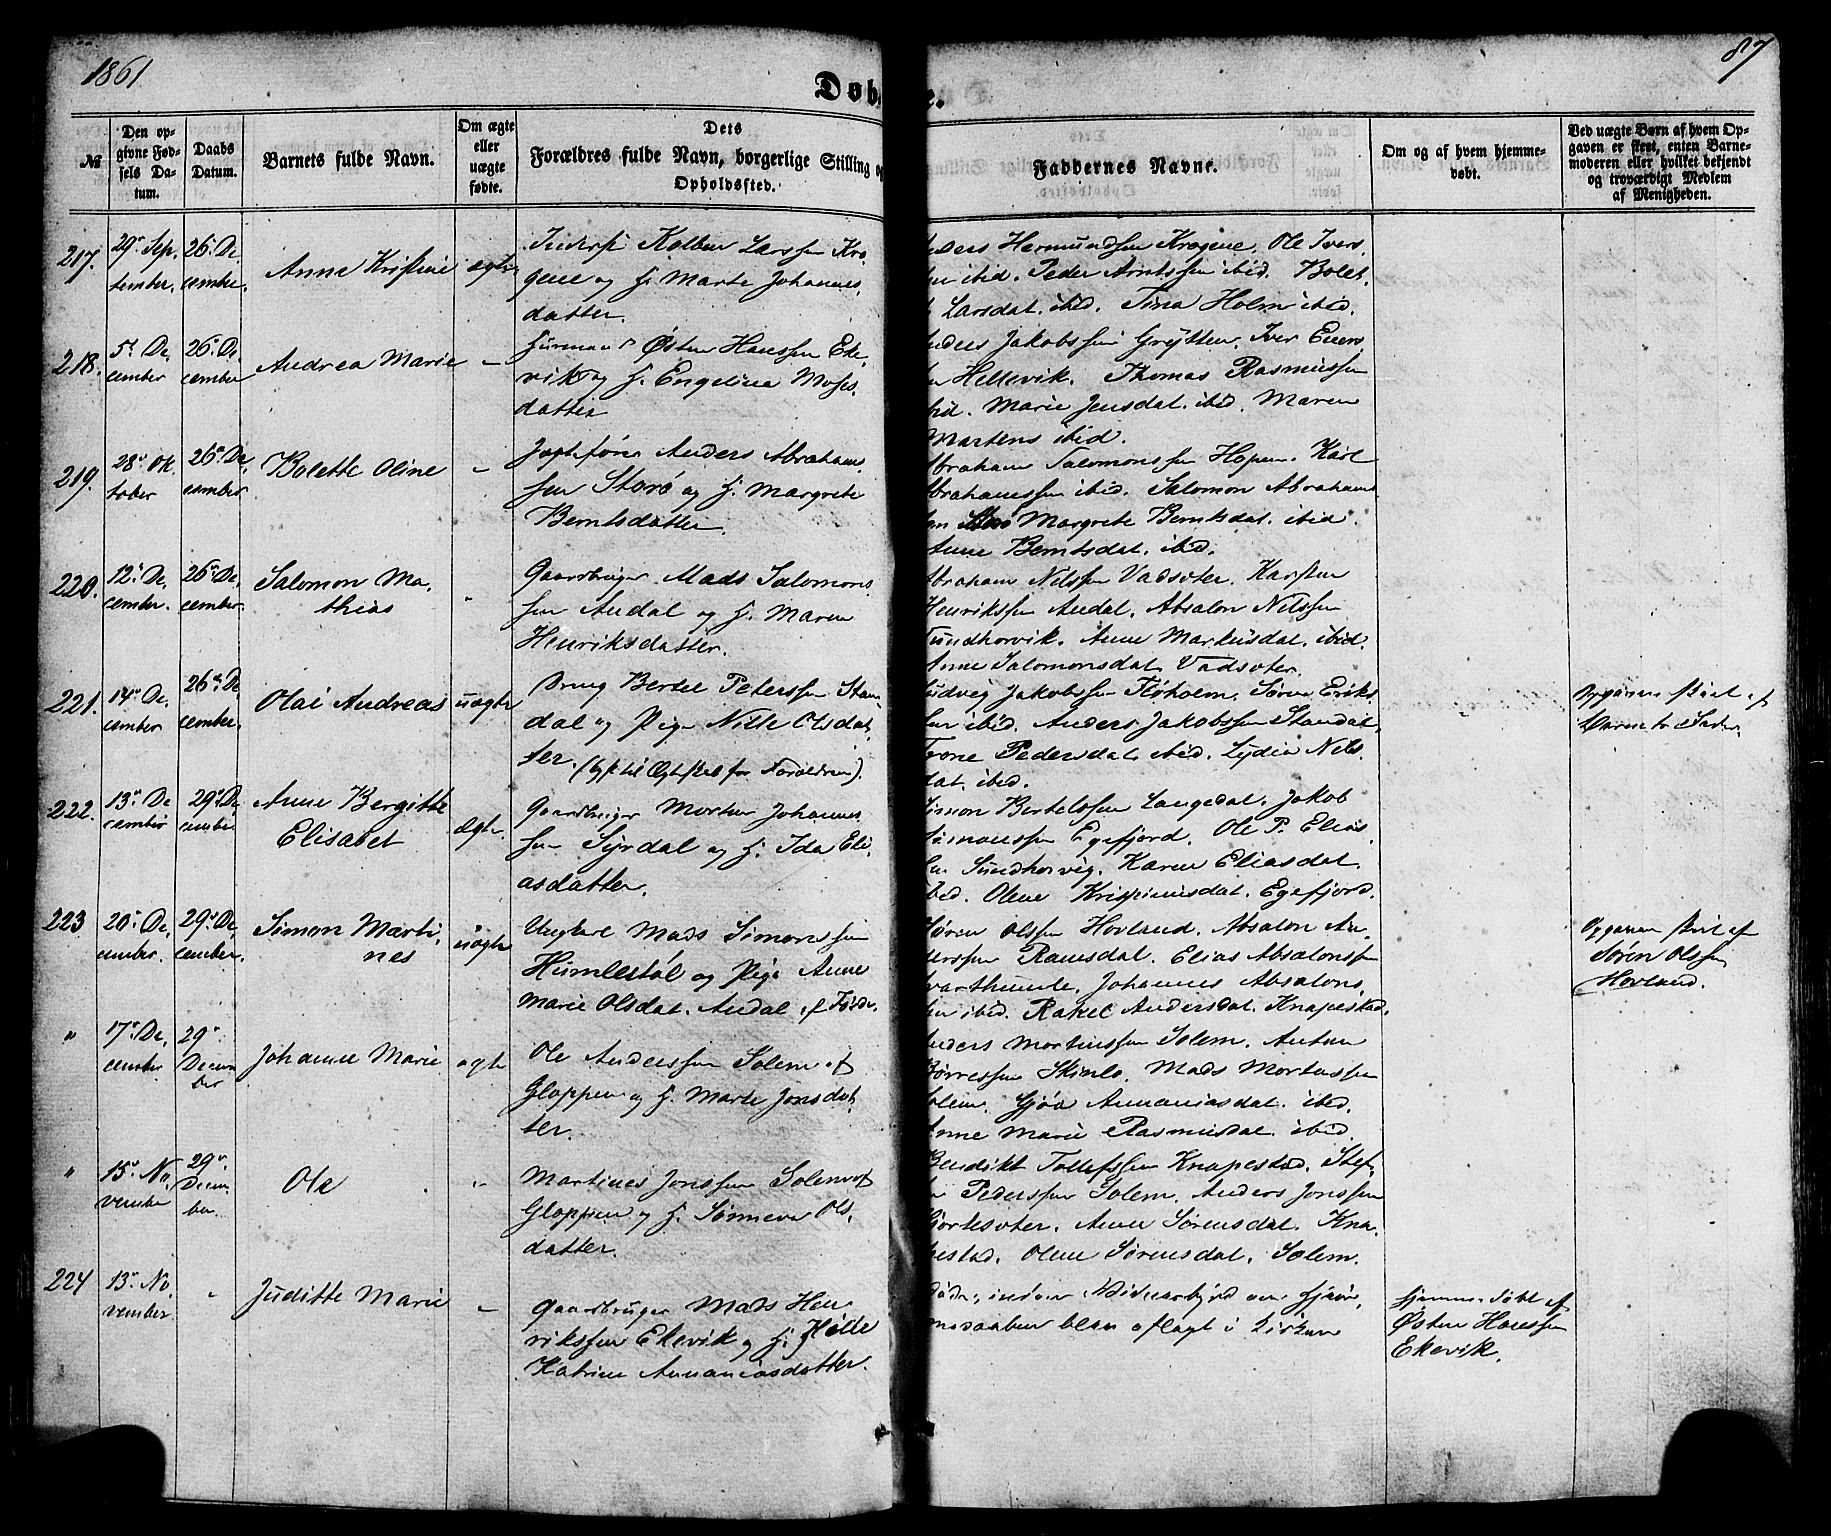 1861
87
Døb
e.
№
Den op-
givne Fød-
sels Da-
tum.
Daabs
Datum.
Barnets fulde Navn.
Om ægte
eller
uægte
fødte.
Dets
Forældres fulde Navn, borgerlige Stilling og
Opholdssted.
Faddernes Navne.
Om og af hvem hjemme-
døbt.
Ved uægte Børn af hvem Op-
gaven er skeet, enten Barne-
moderen eller hvilket bekjendt
og troværdigt Medlem
af Menigheden.
217.
29' Sep,
tember.
26' De,
cember.
Anna Kristine
ægte
Kolben Larssen Kro,
gene og H. Marte Johannes,
datter.
Hermundsen Krogene, Ole Ivers,
sen ibid. Peder Arntssen ibid. Bolet,
Larsdat. ibid. Tina Holm ibid.
218.
5t De,
cember
26' De
cember
Andrea Marie
–
Husmand Østen Hanssen Eke,
vik og H. Engelina Moses,
datter
Jakobssen Grytten, Iver Evers,
Hellevik. Thomas Rasmussen
ibid. Marie Jensdat. ibid. Maren
Martens ibid.
219.
28' Ok,
tober
26' De
cember
Bolette Oline
–
Anders Abraham,
sen Storø og H. Margrete
Berntsdatter.
Abraham Salomonssen Hopen. Karl
Abrahamssen ibid. Salomon Abrahams
Storø Margrete Berntsdat. ibid.
Anne Berntsdat. ibid.
220.
12' De,
cember.
26' De,
cember.
Salomon Ma,
thias
–
Gaardbruger Mads Salomons,
sen Andal og H. Maren
Henriksdatter.
Abraham Nilssen Vadsøter. Karsten
Henrikssen Andal. Absalon Nilssen
Sundhorvik. Anne Markusdat. ibid
Anne Salomonsdat. Vadsøter.
221.
14' De,
cember
26' De
cember.
Olai Andreas
uægte
Bertel Peterssen Stan,
dal og Pige Nille Olsdat,
ter. (Lyst til Ægteskab for Forældrene).
Ludvig Jakobssen Fløholm. Søren Eriks,
sen ibid. Anders Jakobssen Standal,
Trone Pedersdat. ibid. Lydia Nils,
dat. ibid.
Opgaven skeet af
Barnets Fader.
222.
13' De
cember
29' De,
cember.
Anne Bergitte
Elisabet
ægte.
Gaardbruger Morten Johannes,
sen Syrdal og H. Ida Eli,
asdatter.
Simon Bertelssen Langedal. Jakob
Simonssen Egefjord. Ole P. Elias,
sen Sundhorvig. Karen Eliasdat.
ibid. Olene Krispinusdat. Egefjord.
223
20' De,
cember.
29' De,
cember.
Simon Marti,
nes
uægte
Ungkarl Mads Simonssen
Humlestøl og Pige Anne
Marie Olsdat. Andal af Førde.
Søren Olssen Hovland. Absalon An,
derssen Ramsdal. Elias Absalonssen
Svarthumle, Johannes Absalons,
sen ibid. Rakel Andersdat. Knapestad.
Opgaven skeet af
Søren Olssen
Hovland.
"
17' De,
cember
29'
Decem
ber
Johanne Marie
ægte
Ole Anderssen Solem af
Gloppen og H. Marte Jonsdat,
ter.
Anders Martinssen Solem. Anton
Børressen Skinlo. Mads Mortenssen
Solem. Gjøa Annaniasdat. ibid.
Anne Marie Rasmusdat. ibid.
"
15' No,
vember
29'
Decem,
ber.
Ole
"
Martines Jonssen Solem af
Gloppen og H. Sønneva Ols,
datter.
Bendikt Tollefssen Knapestad. Stef,
Pederssen Solem. Anders Jonssen
Hjortesøter. Anne Sørensdat. Kna,
pestad. Olene Sørensdat. Solem.
224
13' No,
vember
"
Juditte Marie
–
Gaardbruger Mads Hen,
rikssen Ekevik og H. Helle
Katrine Annaniasdatter.
Døde, inden Vidnesbyrd om Hjem,
medaaben blev aflagt i Kirken
Hjemmedøbt af
Østen Hanssen
Ekevik.